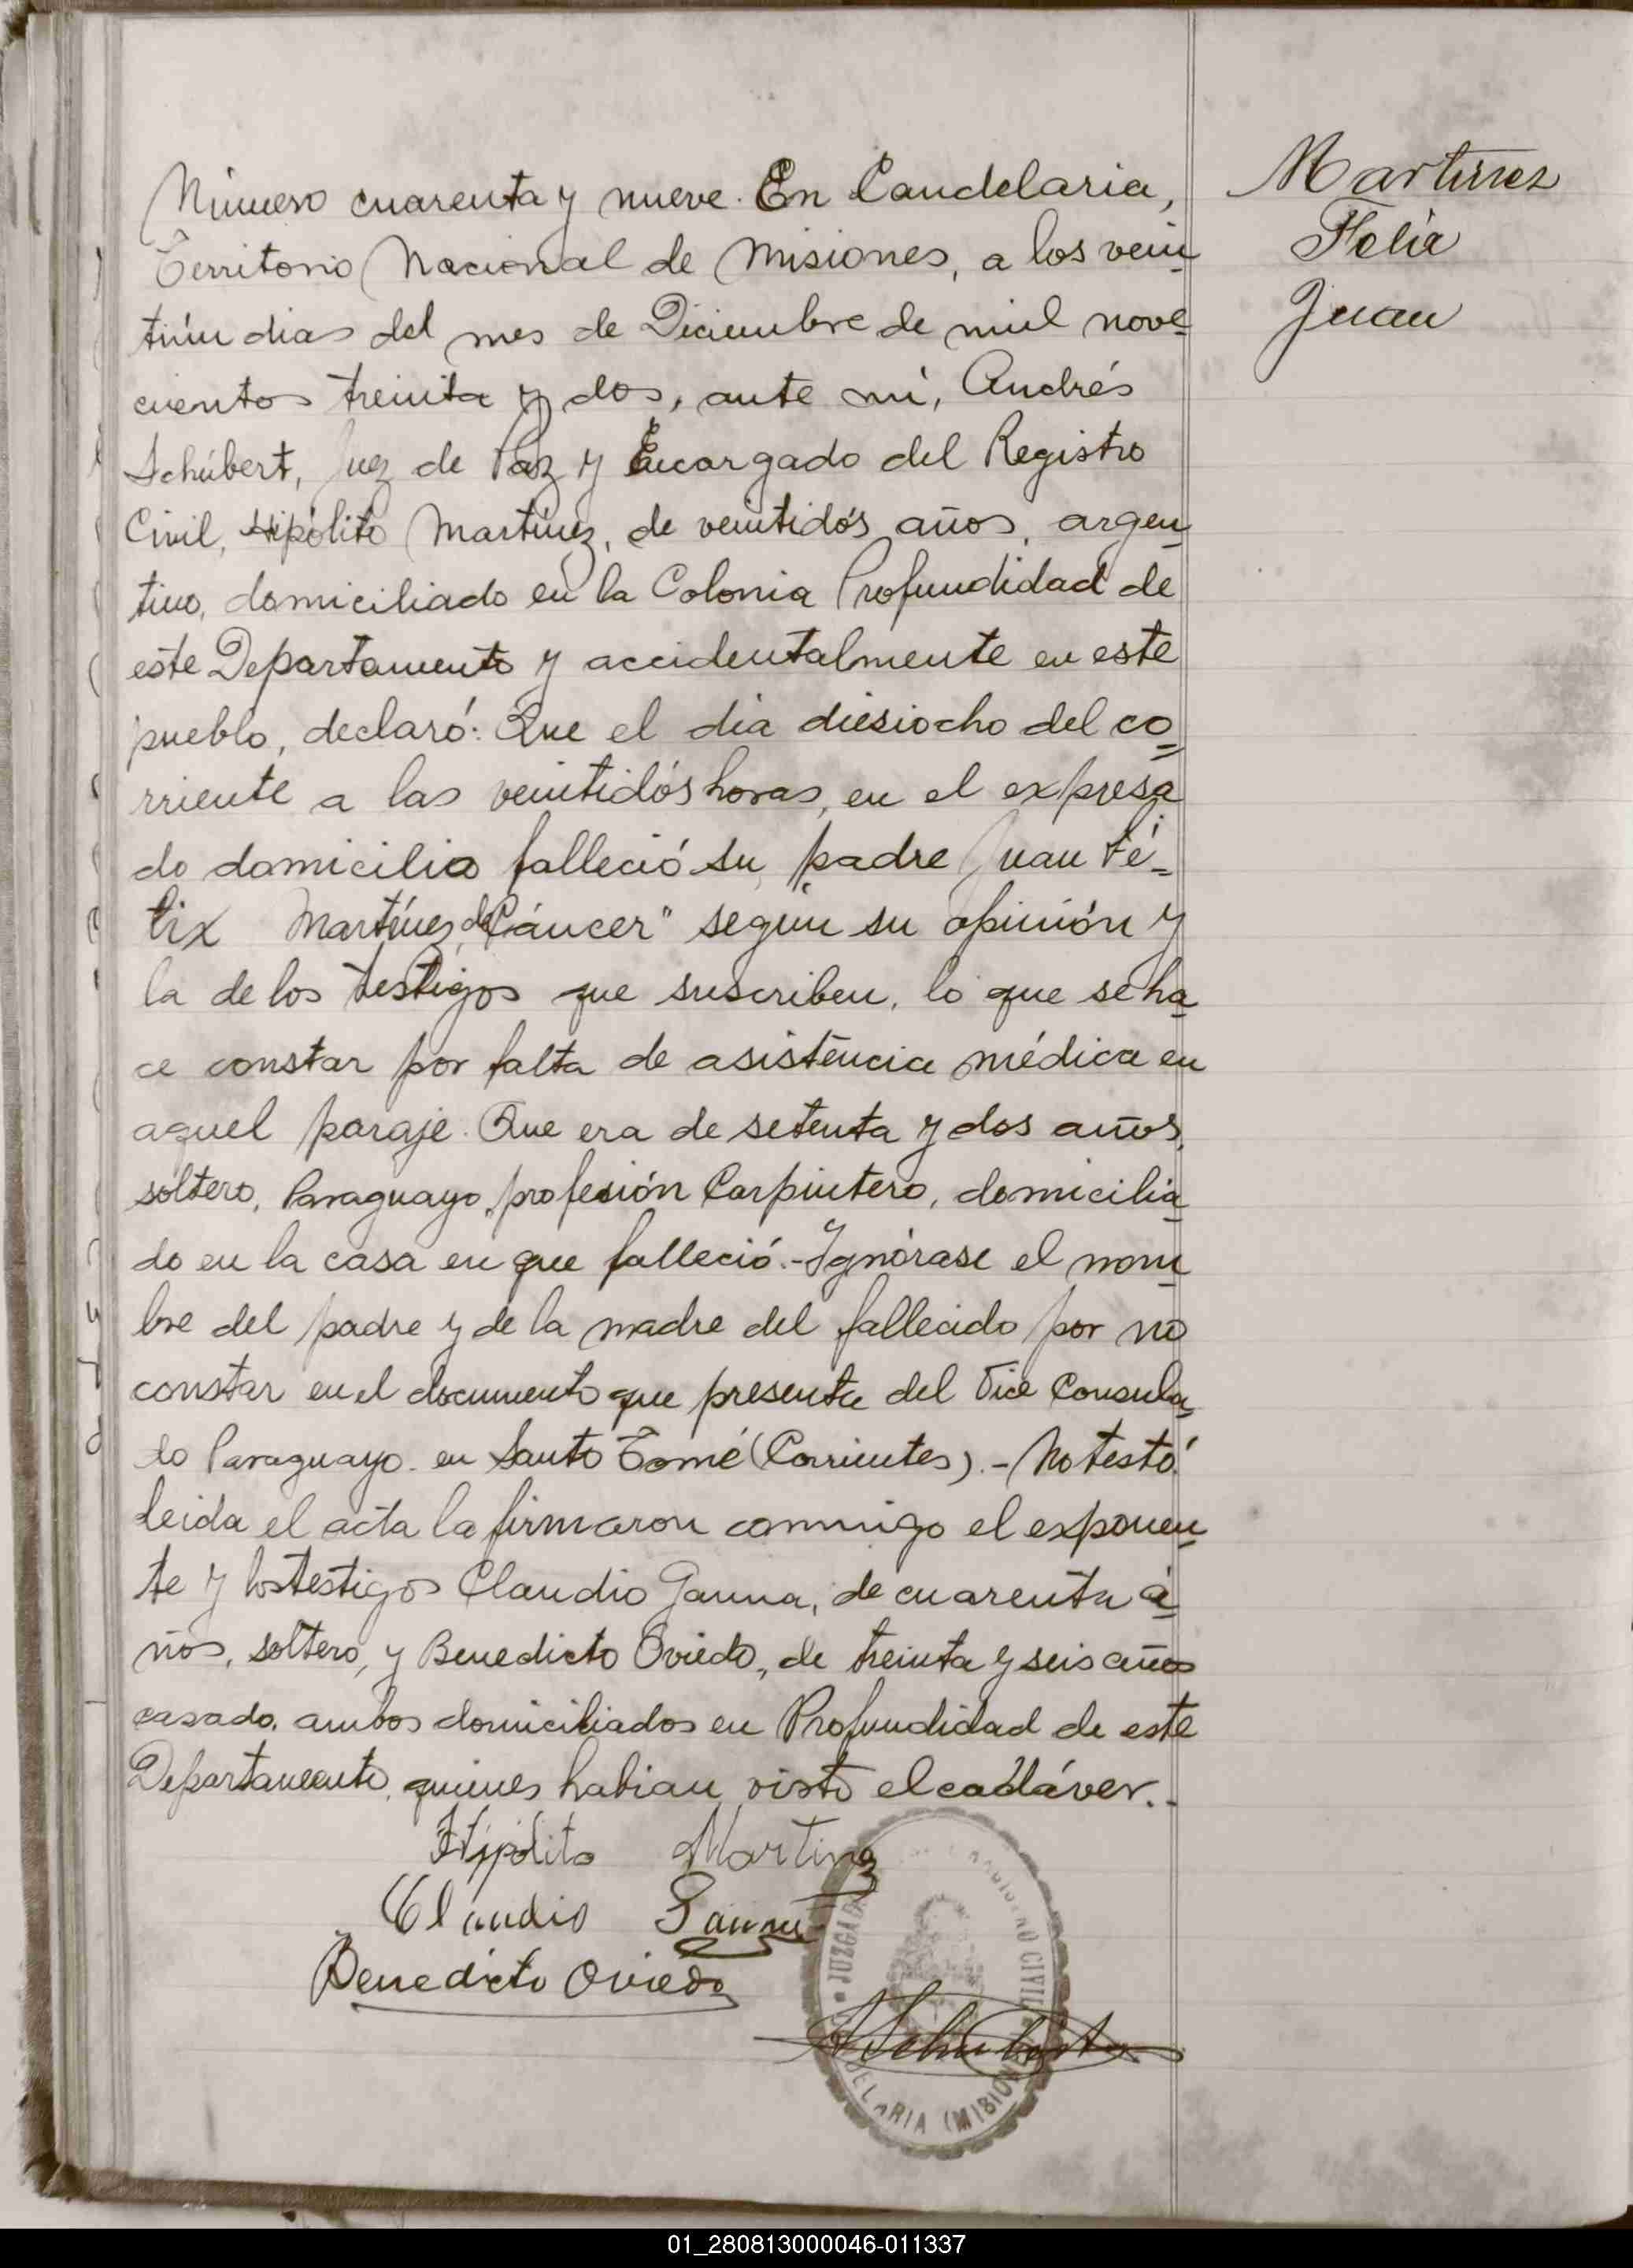 Número cuarenta y nueve. En Candelaria,
Territorio Nacional de Misiones, a los vein
tiún dias del mes de Diciembre de mil nove
cientos treinta y dos, ante mí, Andrés
Schúbert, Juez de Paz y Encargado del Registro
Civil, Hipólito Martínez, de veintidós años, argen
tino, domiciliado en la Colonia Profundidad de
este Departamento y accidentalmente en este
pueblo, declaró: Que el dia diesiocho del co
rriente a las veintidós horas, en el expresa
do domicilio falleció su padre Juan Fé
lix Martínez, de "Cáncer" segun su opinión y
la de los testigos que suscriben, lo que se ha
ce constar por falta de asistencia médica en
aquel paraje. Que era de setenta y dos años,
soltero, Paraguayo, profesión Carpintero, domicilia
do en la casa en que falleció.-Ignórase el nom
bre del padre y de la madre del fallecido por no
constar en el documento que presenta del Vice Consula
do Paraguayo en Santo Tomé (Corrientes).- No testó.
Leida el acta la firmaron conmigo el exponen
te y los testigos Claudio Gauna, de cuarenta a
ños, soltero, y Benedicto Oviedo, de treinta y seis años
casado, ambos domiciliados en Profundidad de este
Departamento, quienes habian visto el cadáver.-
Hipólito Martinez
Claudio Gauna
Benedicto Oviedo
ASchubert
JUZGADO
CIVIL
CANDELARIA (MISIONES)
Martinez
Felix
Juan
01_280813000046-011337